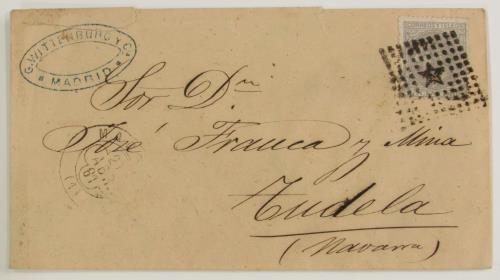 G. WITTENBURG Y Ca
MADRID
CORREOS Y TELEGS
Sor Dn
José Franca y Mina
Tudela
(Navarra)
ABR
81
(1)